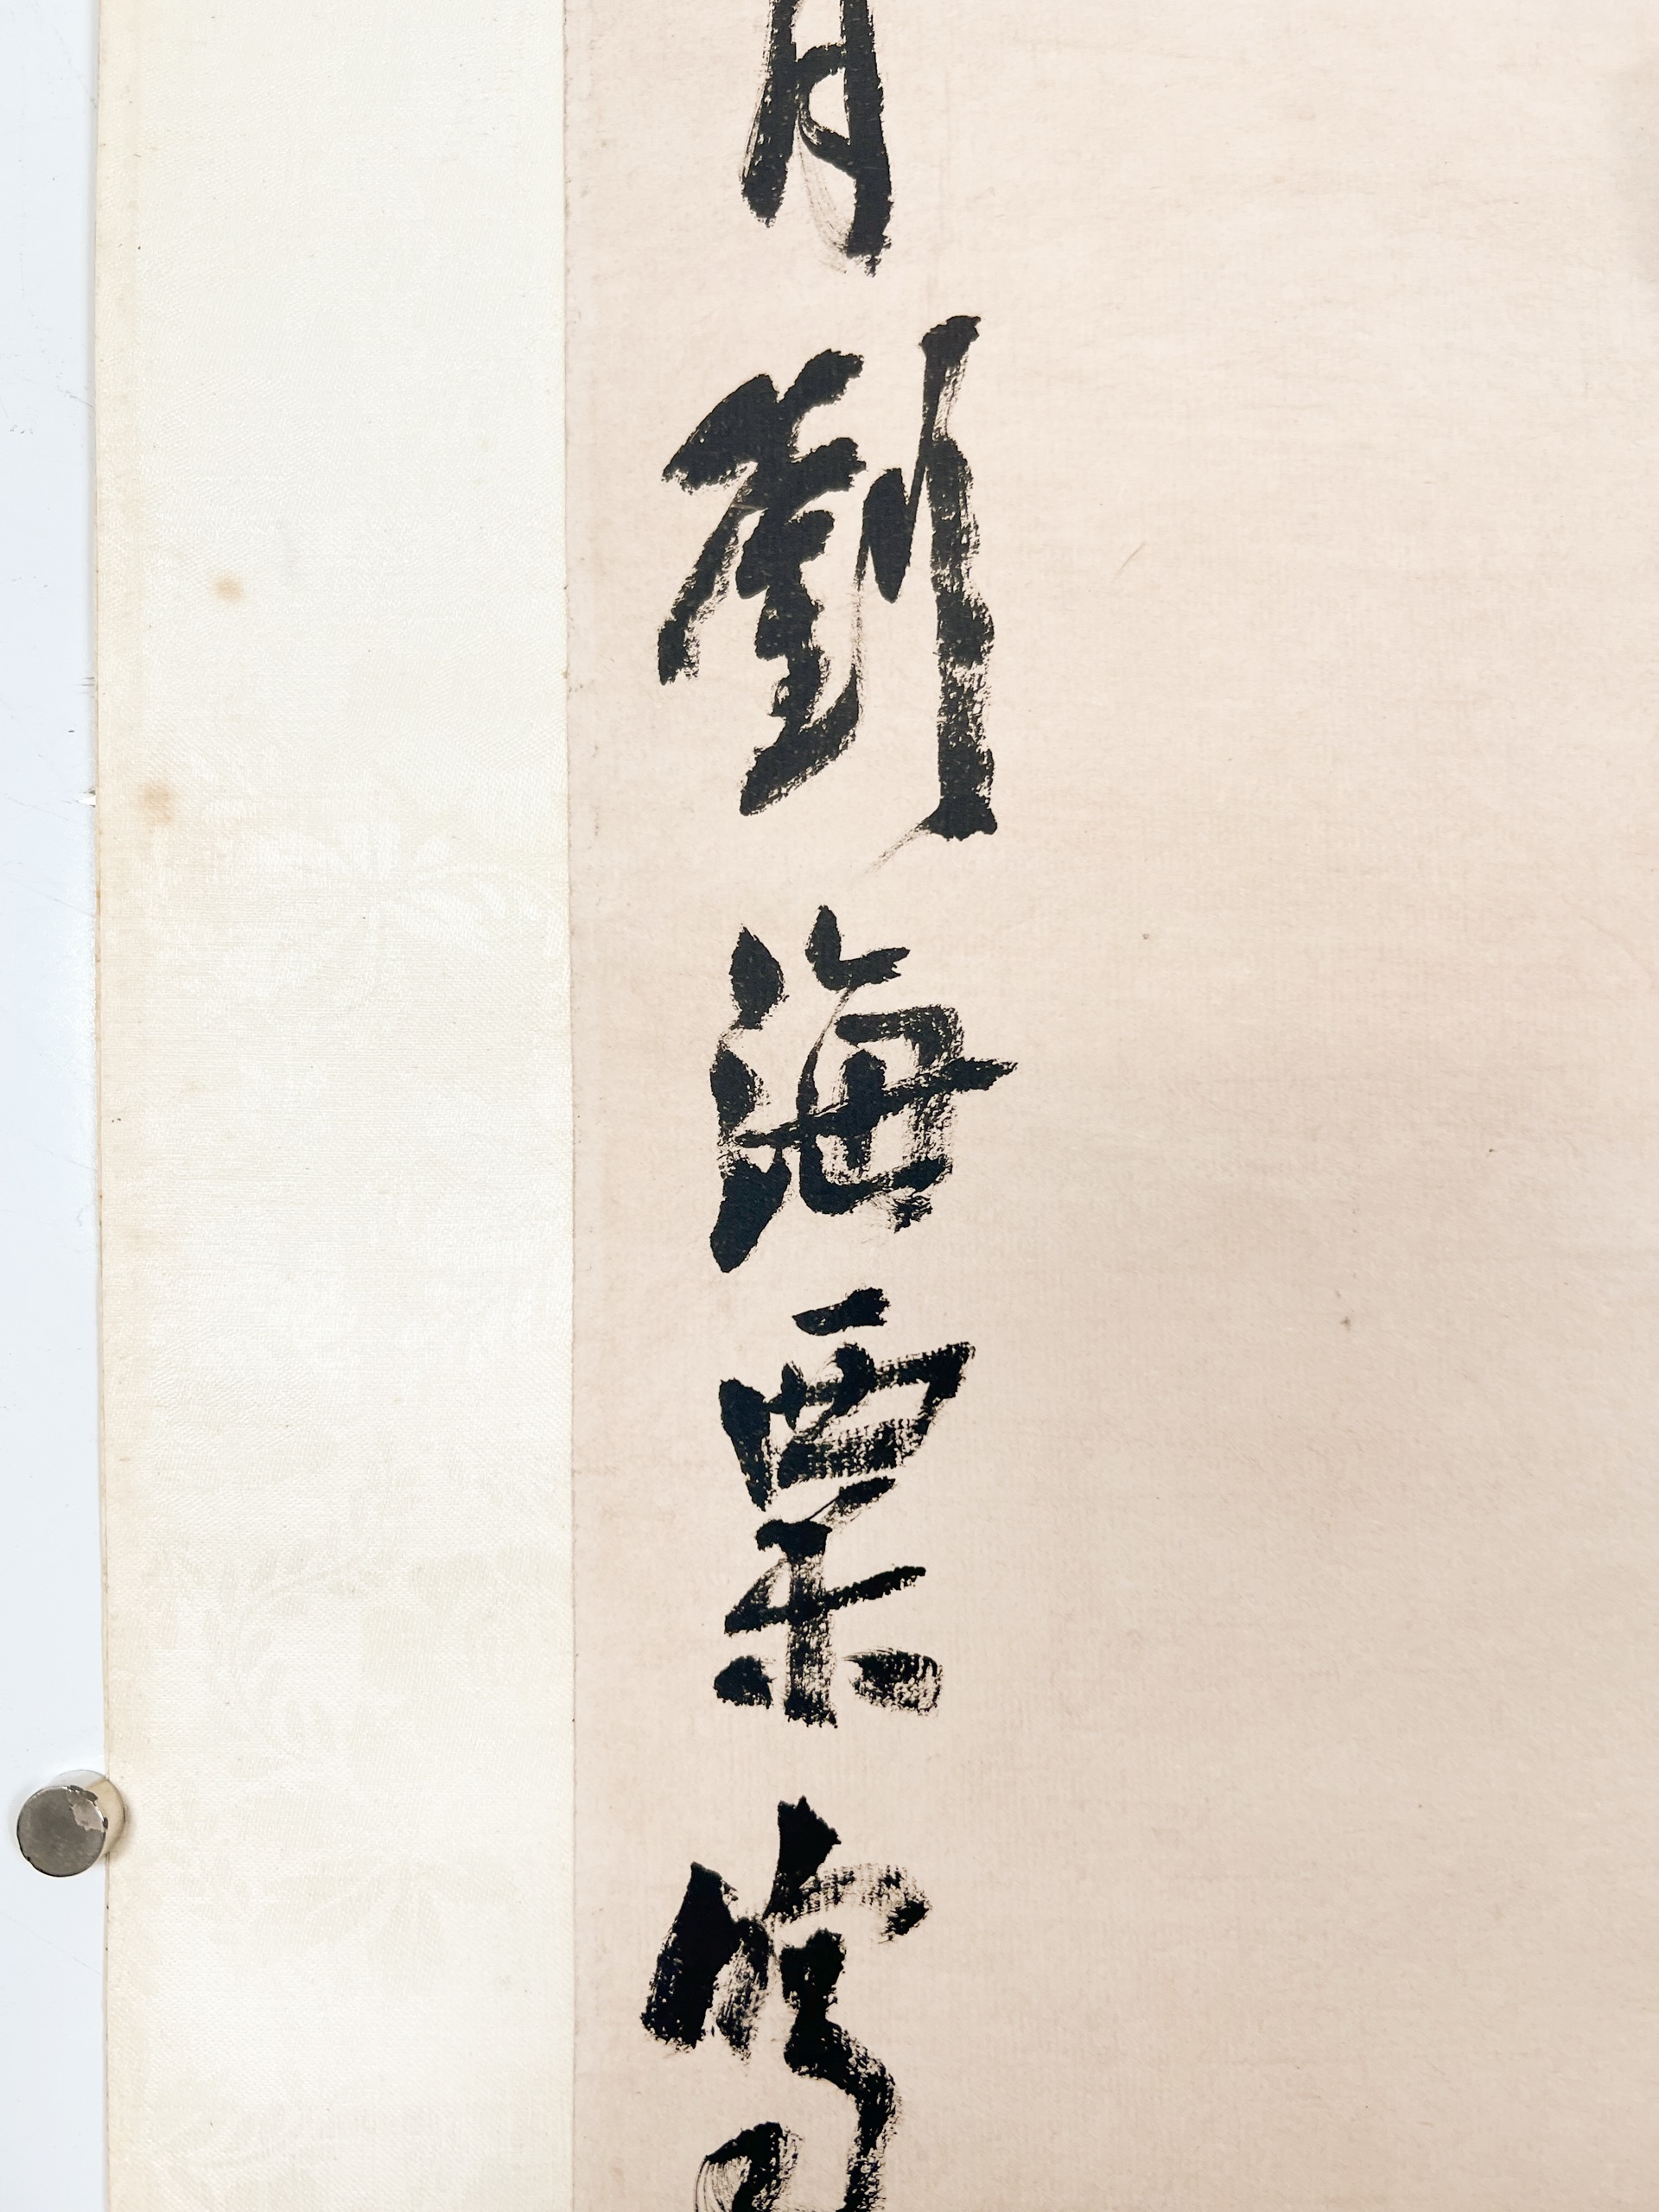 月劉海粟